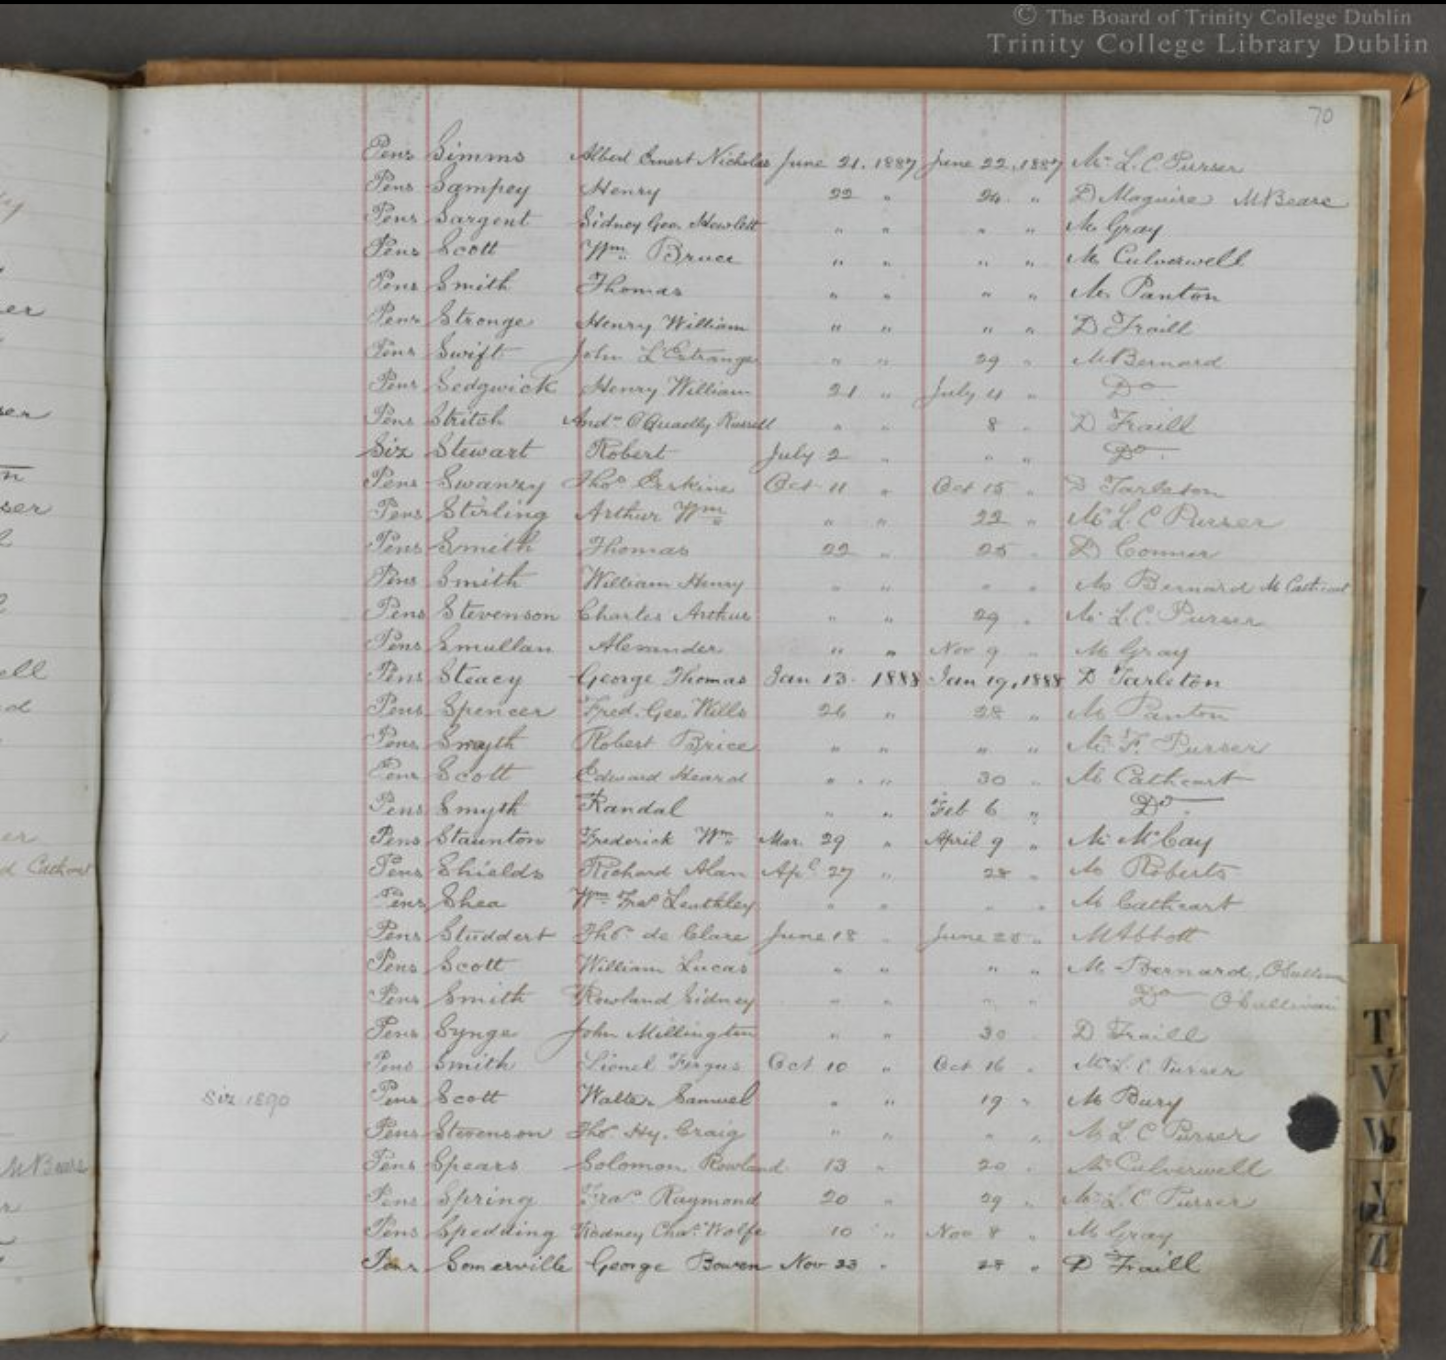 © The Board of Trinity College Dublin
Trinity College Library Dublin
70
Pens Simms Albert Ernest Nicholas June 21. 1887 June 22, 1887 Mr L. C. Purser
Pens Sampey Henry 22 " 24 " D Maguire M Beare
Pens Sargent Sidney Geo. Hewlett " " " " Mr Gray
Pens Scott Wm. Bruce " " " " Mr Culverwell
Pens Smith Thomas " " " " Mr Panton
Pens Stronge Henry William " " " " D Traill
Pens Swift John L'Estrange " " 29 " M Bernard
Pens Sedgwick Henry William 21 " July 4 " Do
Pens Stritch Andw Russell " " 8 " D Traill
Siz Stewart Robert July 2 " " " Do
Pens Swanzy Thos Erskine Oct 11 " Oct 15 " D Tarleton
Pens Stirling Arthur Wm " " 22 " Mr L. C Purser
Pens Smith Thomas 22 " 25 " D Connor
Pens Smith William Henry " " " " Mr Bernard M Cathcart
Pens Stevenson Charles Arthur " " 29 " Mr L. C. Purser
Pens Smullan Alexander " " Nov 9 " M Gray
Pens Steacy George Thomas Jan 13. 1888 Jan 19, 1888 D Tarleton
Pens Spencer Fred. Geo. Wills 26 " 28 " M Panton
Pens Smyth Robert Brice " " " " Mr F. Purser
Pens Scott Edward Heard " " 30 " Mr Cathcart
Pens Smyth Randal " " Feb 6 " Do
Pens Staunton Frederick Wm. Mar. 29 " April 9 " Mr McCay
Pens Shields Richard Alan Apl 27 " 28 " Mr Roberts
Pens Shea Wm Fras Leathley " " " " M Cathcart
Pens Studdert Thos. de Clare June 18 " June 25 " M Abbott
Pens Scott William Lucas " " " " M Bernard, O'Sullivan
Pens Smith Rowland Sidney " " " " Do O'Sullivan
Pens Synge John Millington " " 30 " D Traill
Pens Smith Lionel Fergus Oct 10 " Oct 16 " Mr L. C. Purser
Siz 1890 Pens Scott Walter Samuel " " 19 " Mr Bury
Pens Stevenson Thos. Hy. Craig " " " " Mr L C Purser
Pens Spears Solomon Rowland 13 " 20 " Mr Culverwell
Pens Spring Fras Raymond 20 " 29 " Mr L. C Purser
Pens Spedding Rodney Chas. Wolfe 10 " Nov 8 " M Gray
Pens Somerville George Bowen Nov 23 " 28 " D Traill
T.
V
W
Y
Z